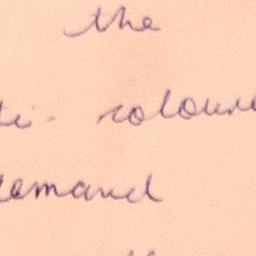 the
i- coloure
demand